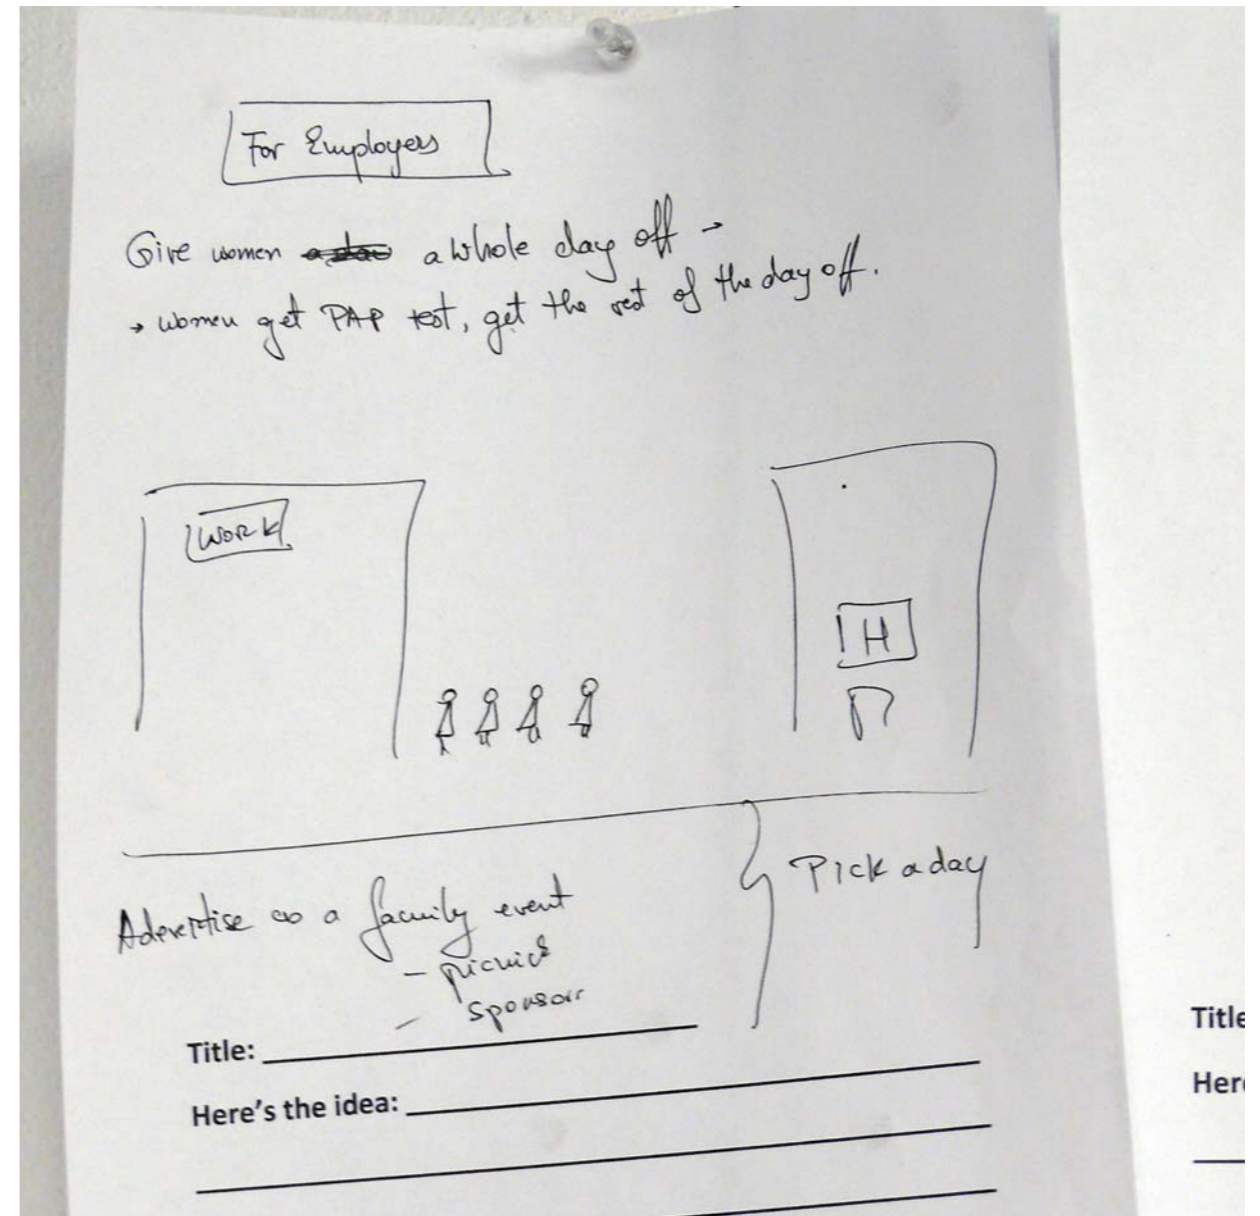 For Employers
Give women a whole day off →
→ women get PAP test, get the rest of the day off.
WORK
H
Adevertise as a family event
- picnic
- sponsor
Pick a day
Title:
Here's the idea:
Title
Here